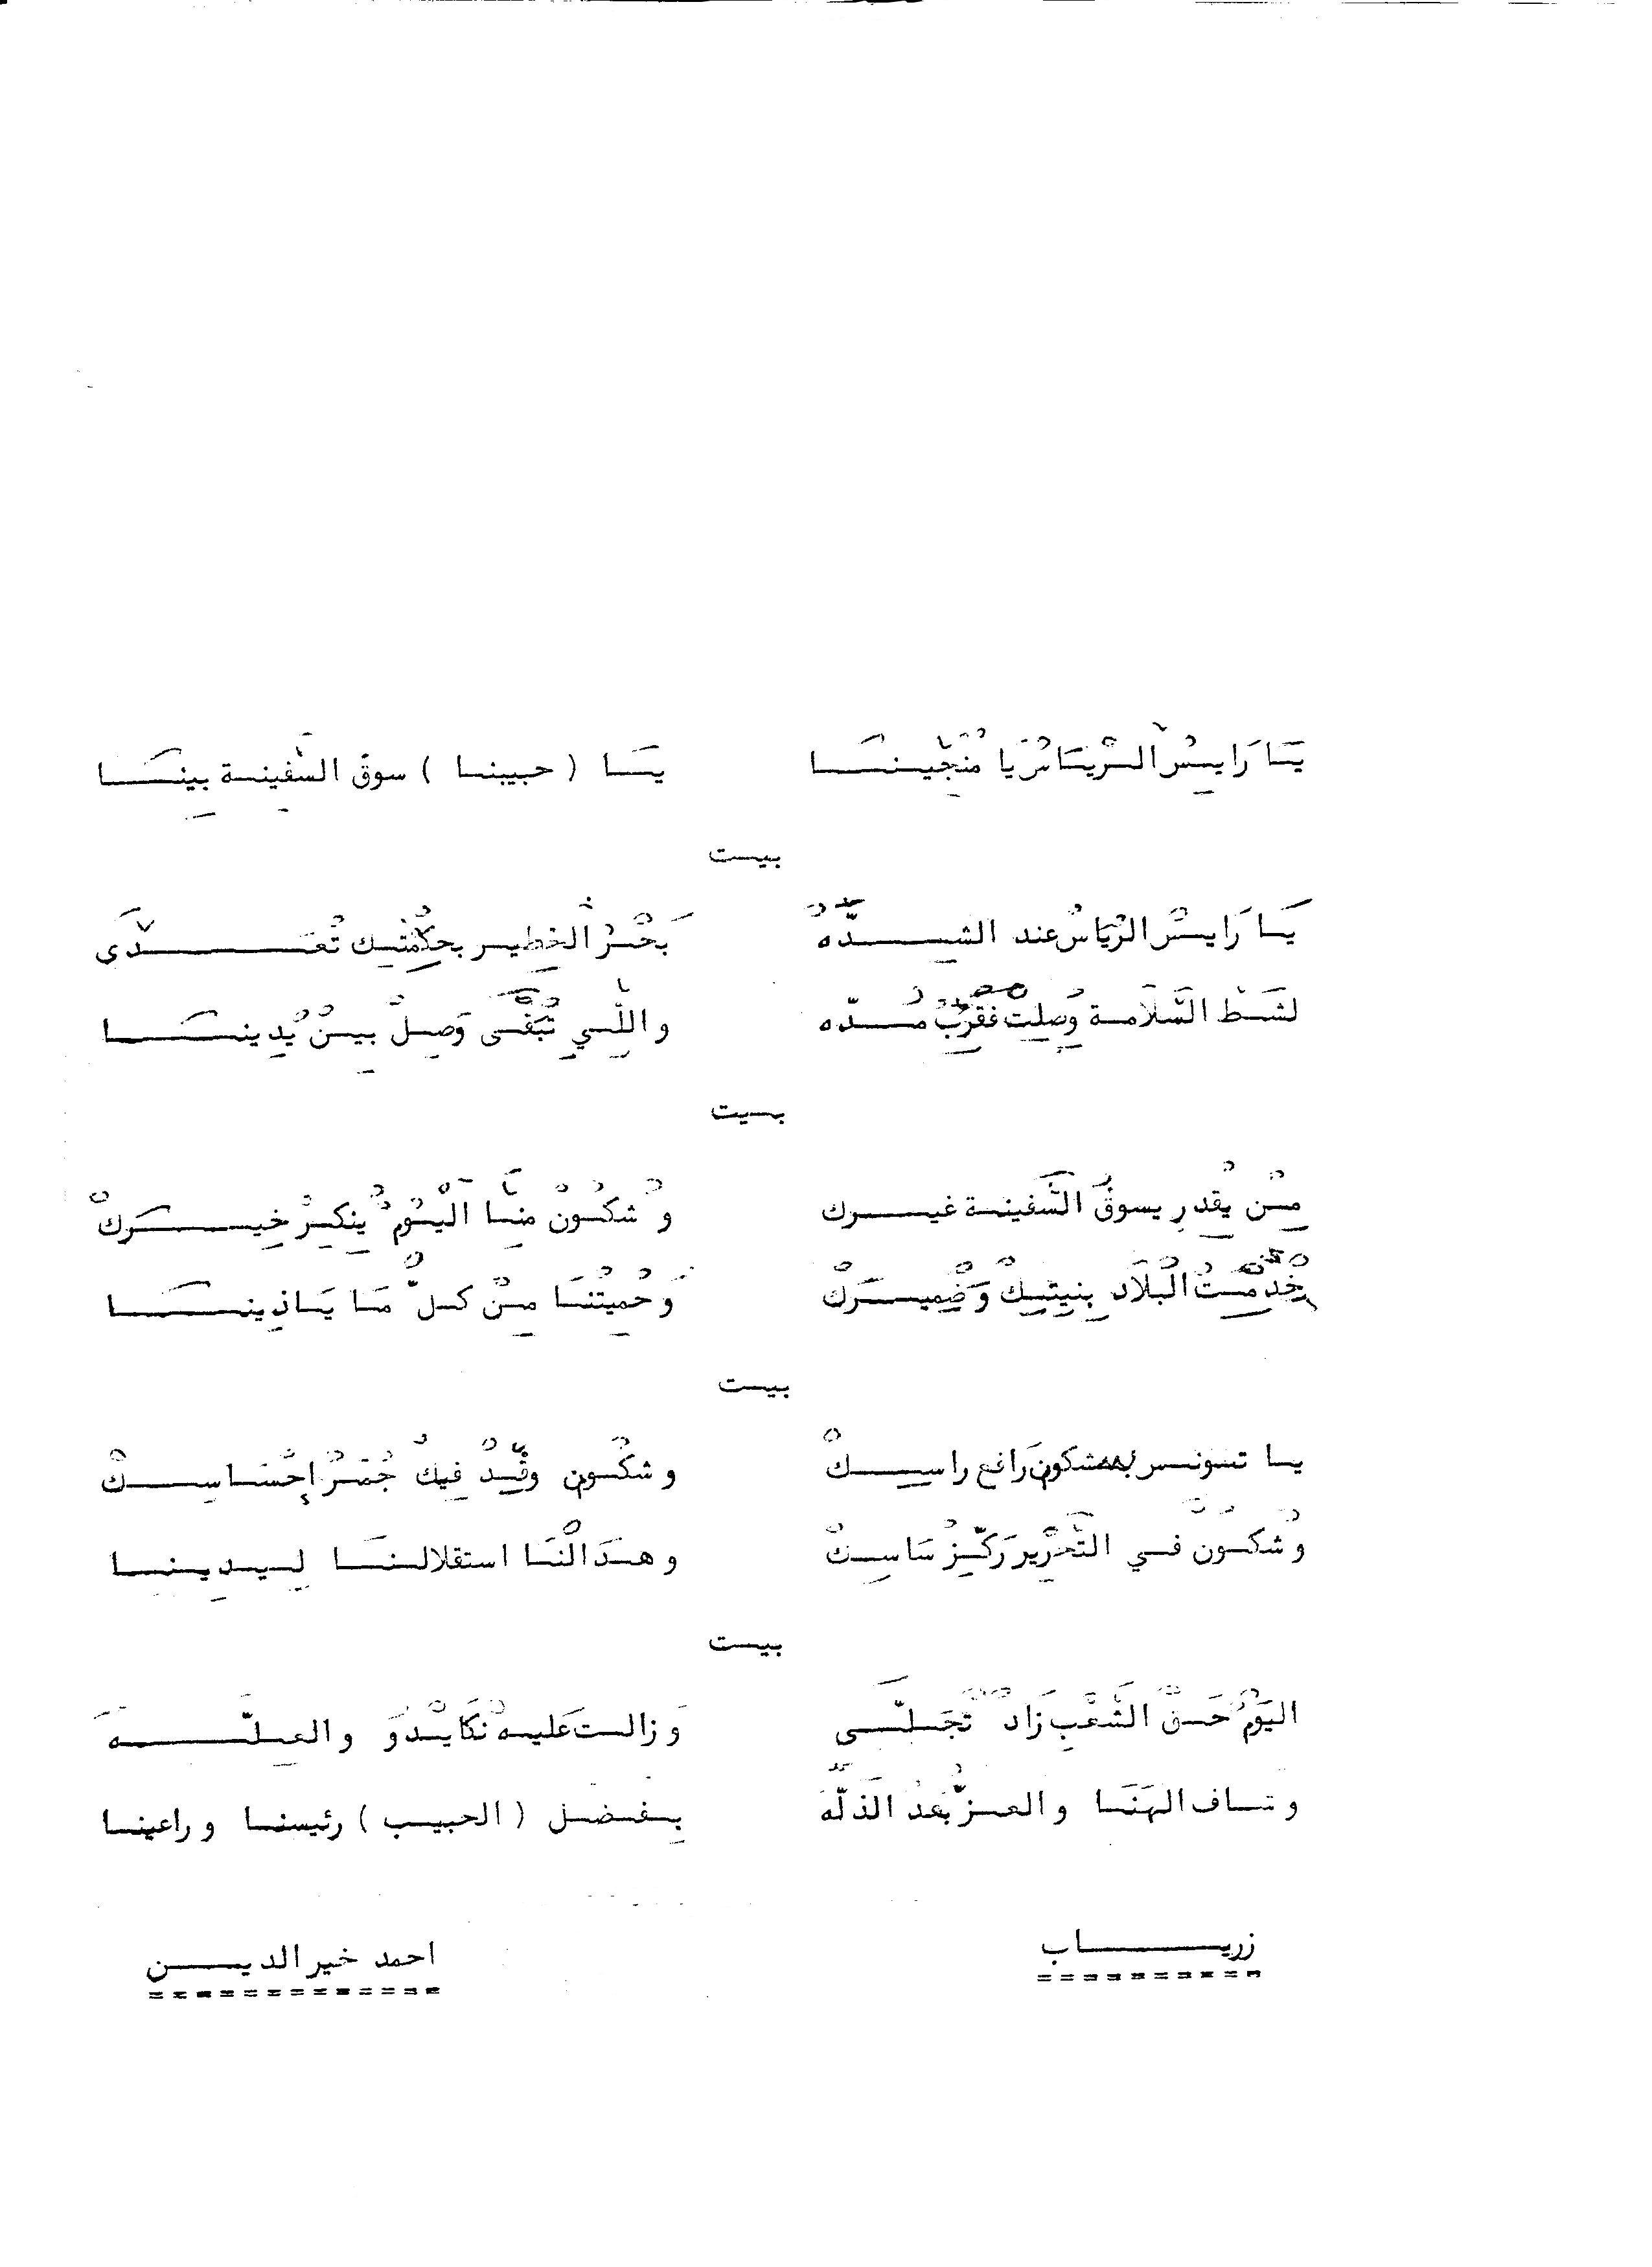 يَا رَايِسْ الرِّيَّاسْ يَا مْنَجِّينَا يَا ( حبيبنا ) سوق السّفِينة بِينَا
بيت
يَا رَايسْ الرْيَاسْ عند الشِدَّهْ بَحْرْ الخْطِير بحِكْمْتِك تْعَدَّى
لشَطْ السَّلَامة وصِلِتْ فقرْبْ مُدّه واللِّي تُبْقَى وَصِلْ بِينْ يْدِينَا
بيت
مِنْ يقْدِر يسوقْ السَّفينة غيرك وْشكُونْ منَّا الْيُومْ يِنكِرْ خِيرَكْ
خْدِمْتْ الْبلَادْ بِنِيتِكْ وَضْمِيرَكْ وَحْمِيتْنَا مِنْ كلّْ مَا يَاذِينَا
بيت
يا تونس شكون رَافع راسِكْ وشكُون وقِّدْ فِيكْ جْمَرْ إِحْسَاسِكْ
وْشكُونْ في التَّحْرِير رَكِّزْ سَاسِكْ وهَدَالْنَا استقلالنَا لِيدِينا
بيت
اليَوْمْ حَقْ الشَّعْبِ زَادْ تجَلَّى وَزالت عَليهْ نْكَايْدُو والعِلَّهَ
وشاف الهَنَا والعزّْ بْعْد الذلَّهْ بِفضل ( الحبيب ) رئيسنا وراعينا
زرياب احمد خير الدين